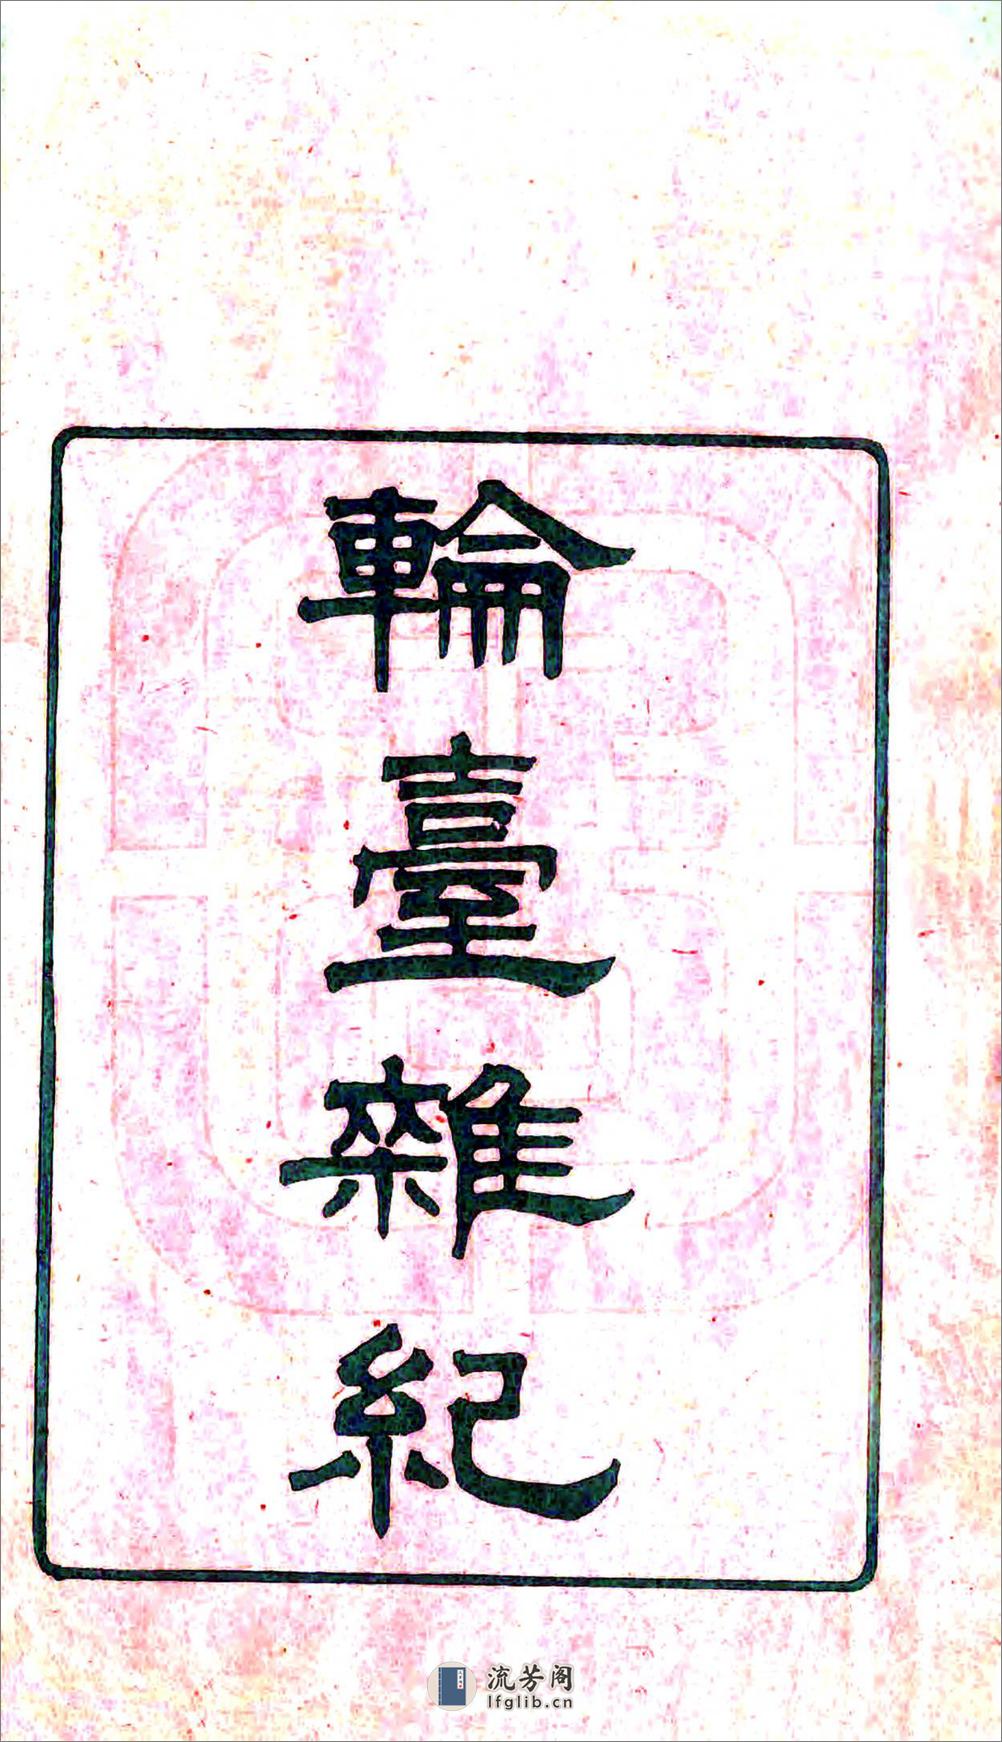 輪臺雜紀
流芳阁
lfglib.cn